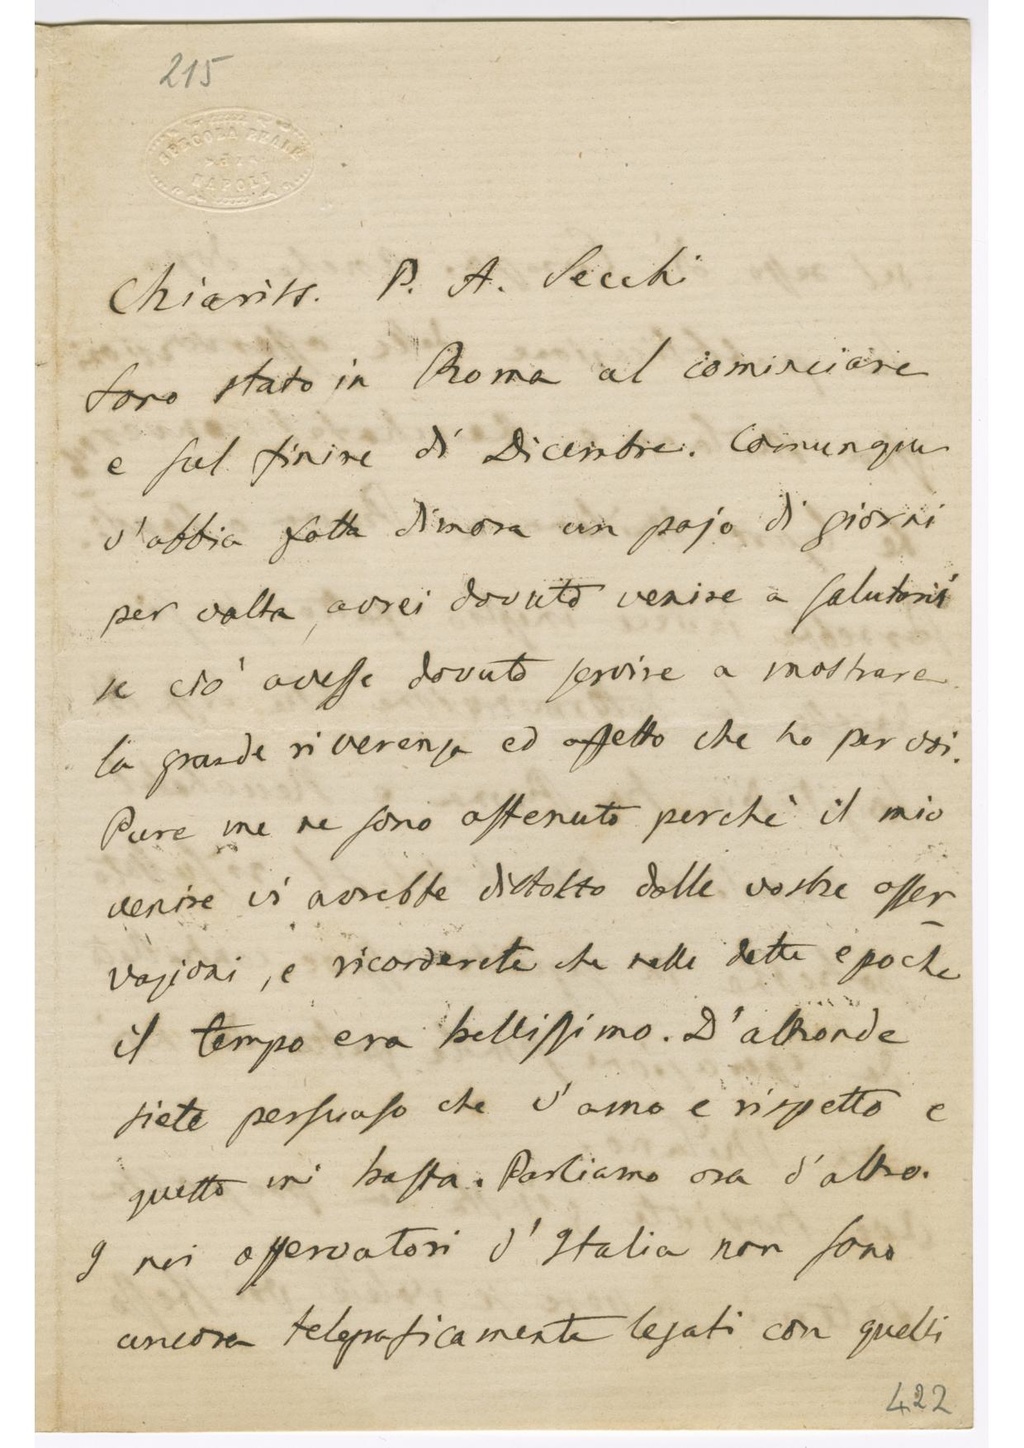 215
SPECOLA REALE
DI
NAPOLI
Chiariss. P. A. Secchi
Sono stato in Roma al cominciare
e sul finire di Dicembre. Comunque
v'abbia fatta dimora un pajo di giorni
per volta, avrei dovuto venire a salutarvi
se ciò avesse dovuto servire a mostrare
la grande riverenza ed affetto che ho per voi.
Pure me ne sono astenuto perchè il mio
venire vi avrebbe distolto dalle vostre osser
vazioni, e ricorderete che nelle dette epoche
il tempo era bellissimo. D'altronde
siete persuaso che v'amo e rispetto e
questo mi basta. Parliamo ora d'altro.
I nei osservatori d'Italia non sono
ancora telegraficamente legati con quelli
422